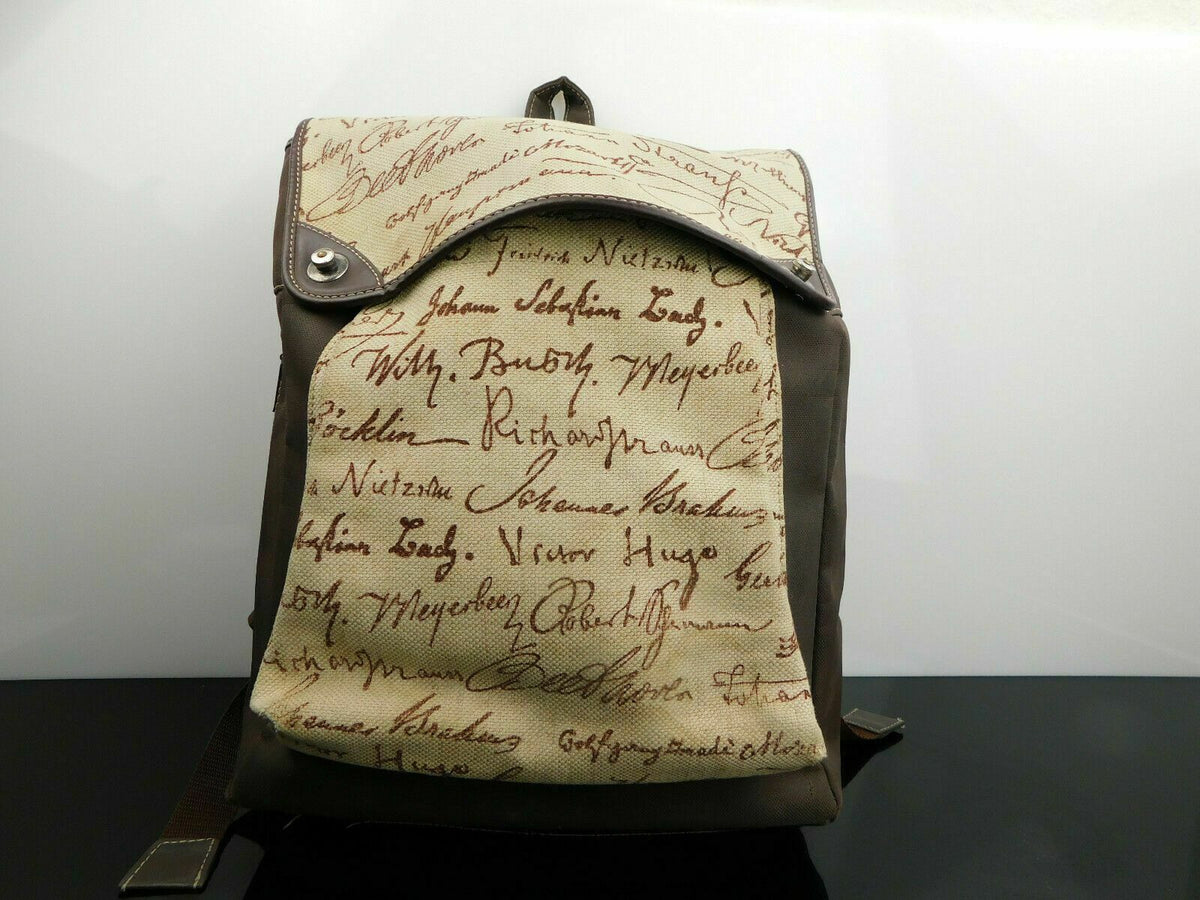 Robert Johann Strauß
Beethoven
Wolfgang Amadé Mozart
Hauptmann
Nord
Friedrich Nietzsche
Johann Sebastian Bach.
Wilh. Busch. Meyerbeer
Böcklin Richard Strauss
Nietzsche Johannes Brahms
bastian Bach. Victor Hugo Ger
usch. Meyerbeer Robert Schumann
ichard Strauss Beethoven Johan
hannes Brahms Wolfgang Amadé Mozar
Hugo